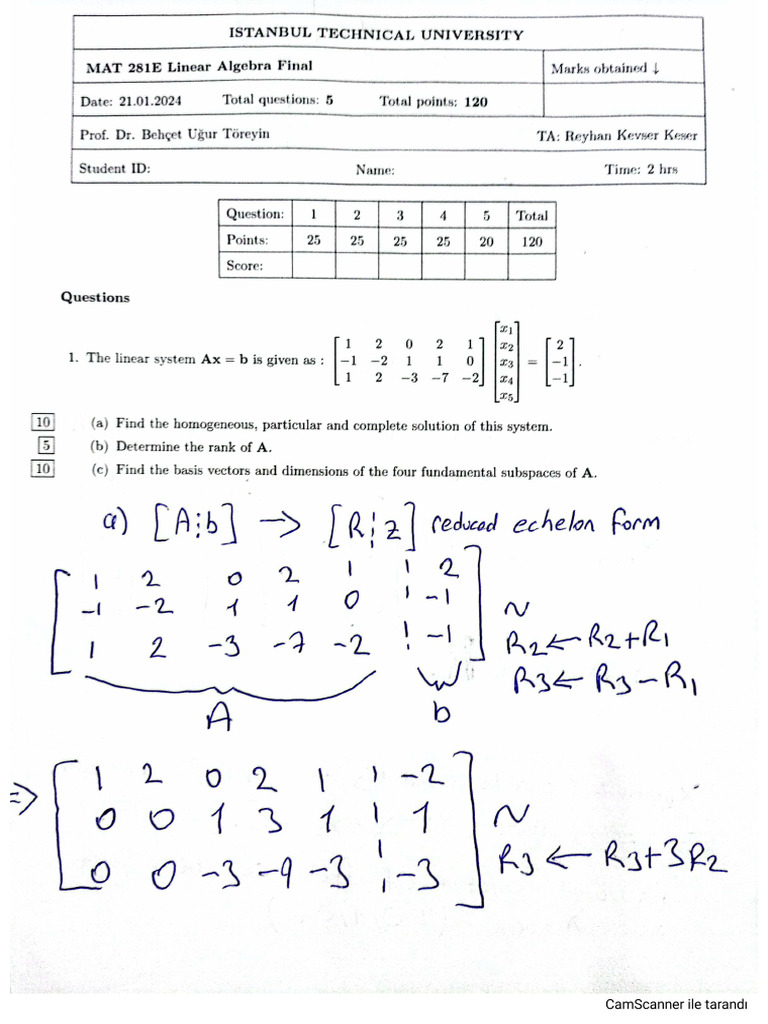 ISTANBUL TECHNICAL UNIVERSITY
MAT 281E Linear Algebra Final
Marks obtained ↓
Date: 21.01.2024 Total questions: 5 Total points: 120
Prof. Dr. Behçet Uğur Töreyin TA: Reyhan Kevser Keser
Student ID: Name: Time: 2 hrs
Question: 1 2 3 4 5 Total
Points: 25 25 25 25 20 120
Score:
Questions
1. The linear system Ax = b is given as : [1 2 0 2 1; -1 -2 1 1 0; 1 2 -3 -7 -2] [x1; x2; x3; x4; x5] = [2; -1; -1].
10 (a) Find the homogeneous, particular and complete solution of this system.
5 (b) Determine the rank of A.
10 (c) Find the basis vectors and dimensions of the four fundamental subspaces of A.
a) [A¦b] → [R¦z] reduced echelon form
1 2 0 2 1 ¦ 2
-1 -2 1 1 0 ¦ -1 ~
1 2 -3 -7 -2 ¦ -1 R2 ← R2+R1
R3 ← R3-R1
A b
⇒ 1 2 0 2 1 ¦ -2
0 0 1 3 1 ¦ 1 ~
0 0 -3 -9 -3 ¦ -3 R3 ← R3+3R2
CamScanner ile tarandı